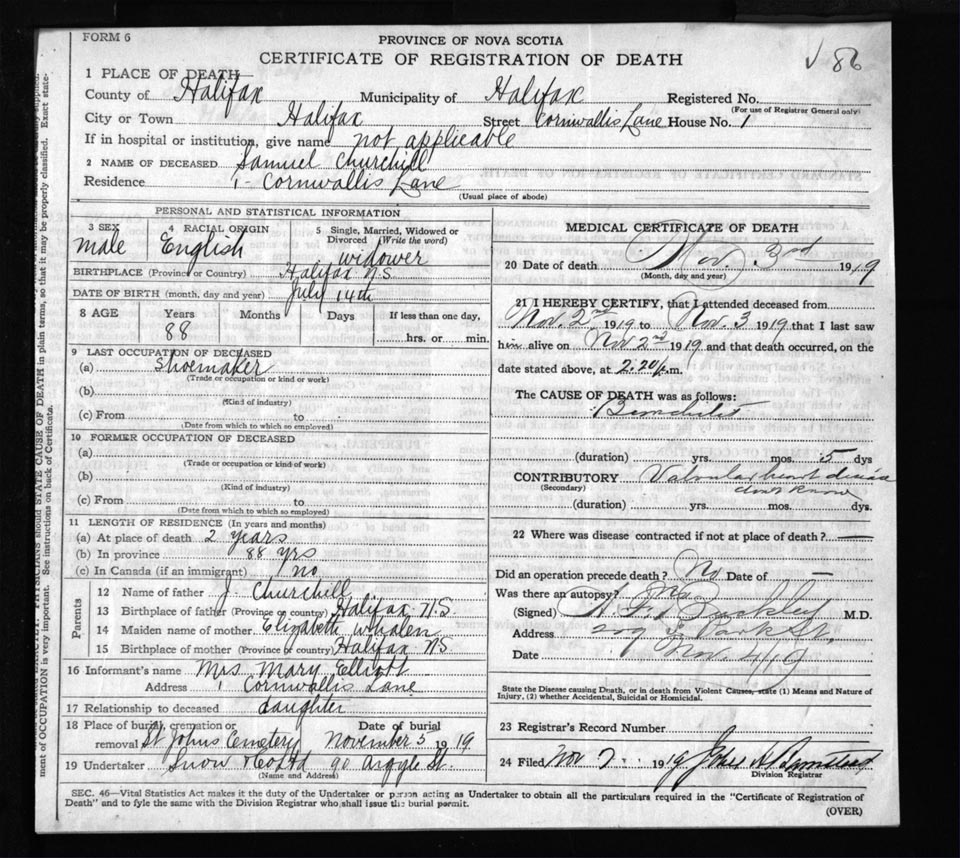 FORM 6
PROVINCE OF NOVA SCOTIA
CERTIFICATE OF REGISTRATION OF DEATH
86
1 PLACE OF DEATH
County of Halifax Municipality of Halifax Registered No.
(For use of Registrar General only)
City or Town Halifax Street Cornwallis Lane House No. 1
If in hospital or institution, give name not applicable
2 NAME OF DECEASED Samuel Churchill
Residence 1 - Cornwallis Lane
(Usual place of abode)
PERSONAL AND STATISTICAL INFORMATION
3 SEX 4 RACIAL ORIGIN 5 Single, Married, Widowed or Divorced (Write the word)
male English widower
BIRTHPLACE (Province or Country) Halifax N.S.
DATE OF BIRTH (month, day and year) July 14th
8 AGE Years Months Days If less than one day,
88 hrs. or min.
9 LAST OCCUPATION OF DECEASED
(a) Shoemaker
(Trade or occupation or kind or work)
(b)
(Kind of industry)
(c) From to
(Date from which to which so employed)
10 FORMER OCCUPATION OF DECEASED
(a)
(Trade or occupation or kind or work)
(b)
(Kind of industry)
(c) From to
(Date from which to which so employed)
11 LENGTH OF RESIDENCE (In years and months)
(a) At place of death 2 years
(b) In province 88 yrs
(c) In Canada (if an immigrant) no
Parents
12 Name of father J. Churchill
13 Birthplace of father (Province or country) Halifax N.S.
14 Maiden name of mother Elizabeth Whalen
15 Birthplace of mother (Province or country) Halifax NS
16 Informant's name Mrs. Mary Elliott
Address 1 Cornwallis Lane
17 Relationship to deceased daughter
18 Place of burial, cremation or Date of burial
removal St Johns Cemetery November 5 1919
19 Undertaker Snow & Co Ltd 90 Argyle St.
(Name and Address)
MEDICAL CERTIFICATE OF DEATH
20 Date of death Nov. 3rd 1919
(Month, day and year)
21 I HEREBY CERTIFY, that I attended deceased from
Nov. 2nd 1919 to Nov. 3 1919 that I last saw
him alive on Nov 2nd 1919 and that death occurred, on the
date stated above, at 2.20 p.m.
The CAUSE OF DEATH was as follows:
Bronchitis
(duration) yrs. mos. 5 dys
CONTRIBUTORY Valvular heart disease
(Secondary) dont know
(duration) yrs. mos. dys.
22 Where was disease contracted if not at place of death? —
Did an operation precede death? No Date of —
Was there an autopsy? no
(Signed) Buckley M.D.
Address Park St.
Date Nov. 4/19
State the Disease causing Death, or in death from Violent Causes, state (1) Means and Nature of
Injury, (2) whether Accidental, Suicidal or Homicidal.
23 Registrar's Record Number
24 Filed Nov 7 1919
Division Registrar
SEC. 46—Vital Statistics Act makes it the duty of the Undertaker or person acting as Undertaker to obtain all the particulars required in the "Certificate of Registration of
Death" and to fyle the same with the Division Registrar who shall issue the burial permit.
(OVER)
PHYSICIANS should STATE CAUSE OF DEATH in plain terms, so that it may be properly classified. Exact state-
ment of OCCUPATION is very important. See instructions on back of Certificate.